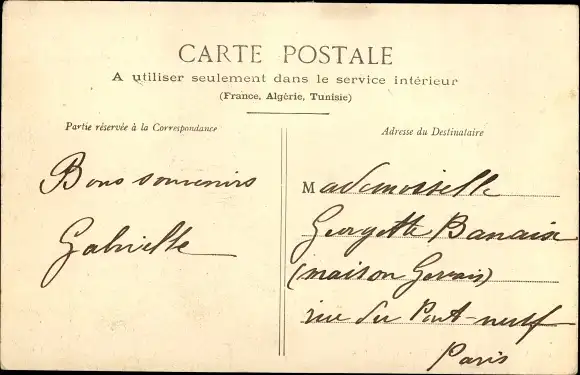 CARTE POSTALE
A utiliser seulement dans le service intérieur
(France, Algérie, Tunisie)
Partie réservée à la Correspondance
Bons souvenirs
Gabrielle
Adresse du Destinataire
Mademoiselle
Georgette Banaix
(maison Gervais)
rue du Pont-neuf
Paris